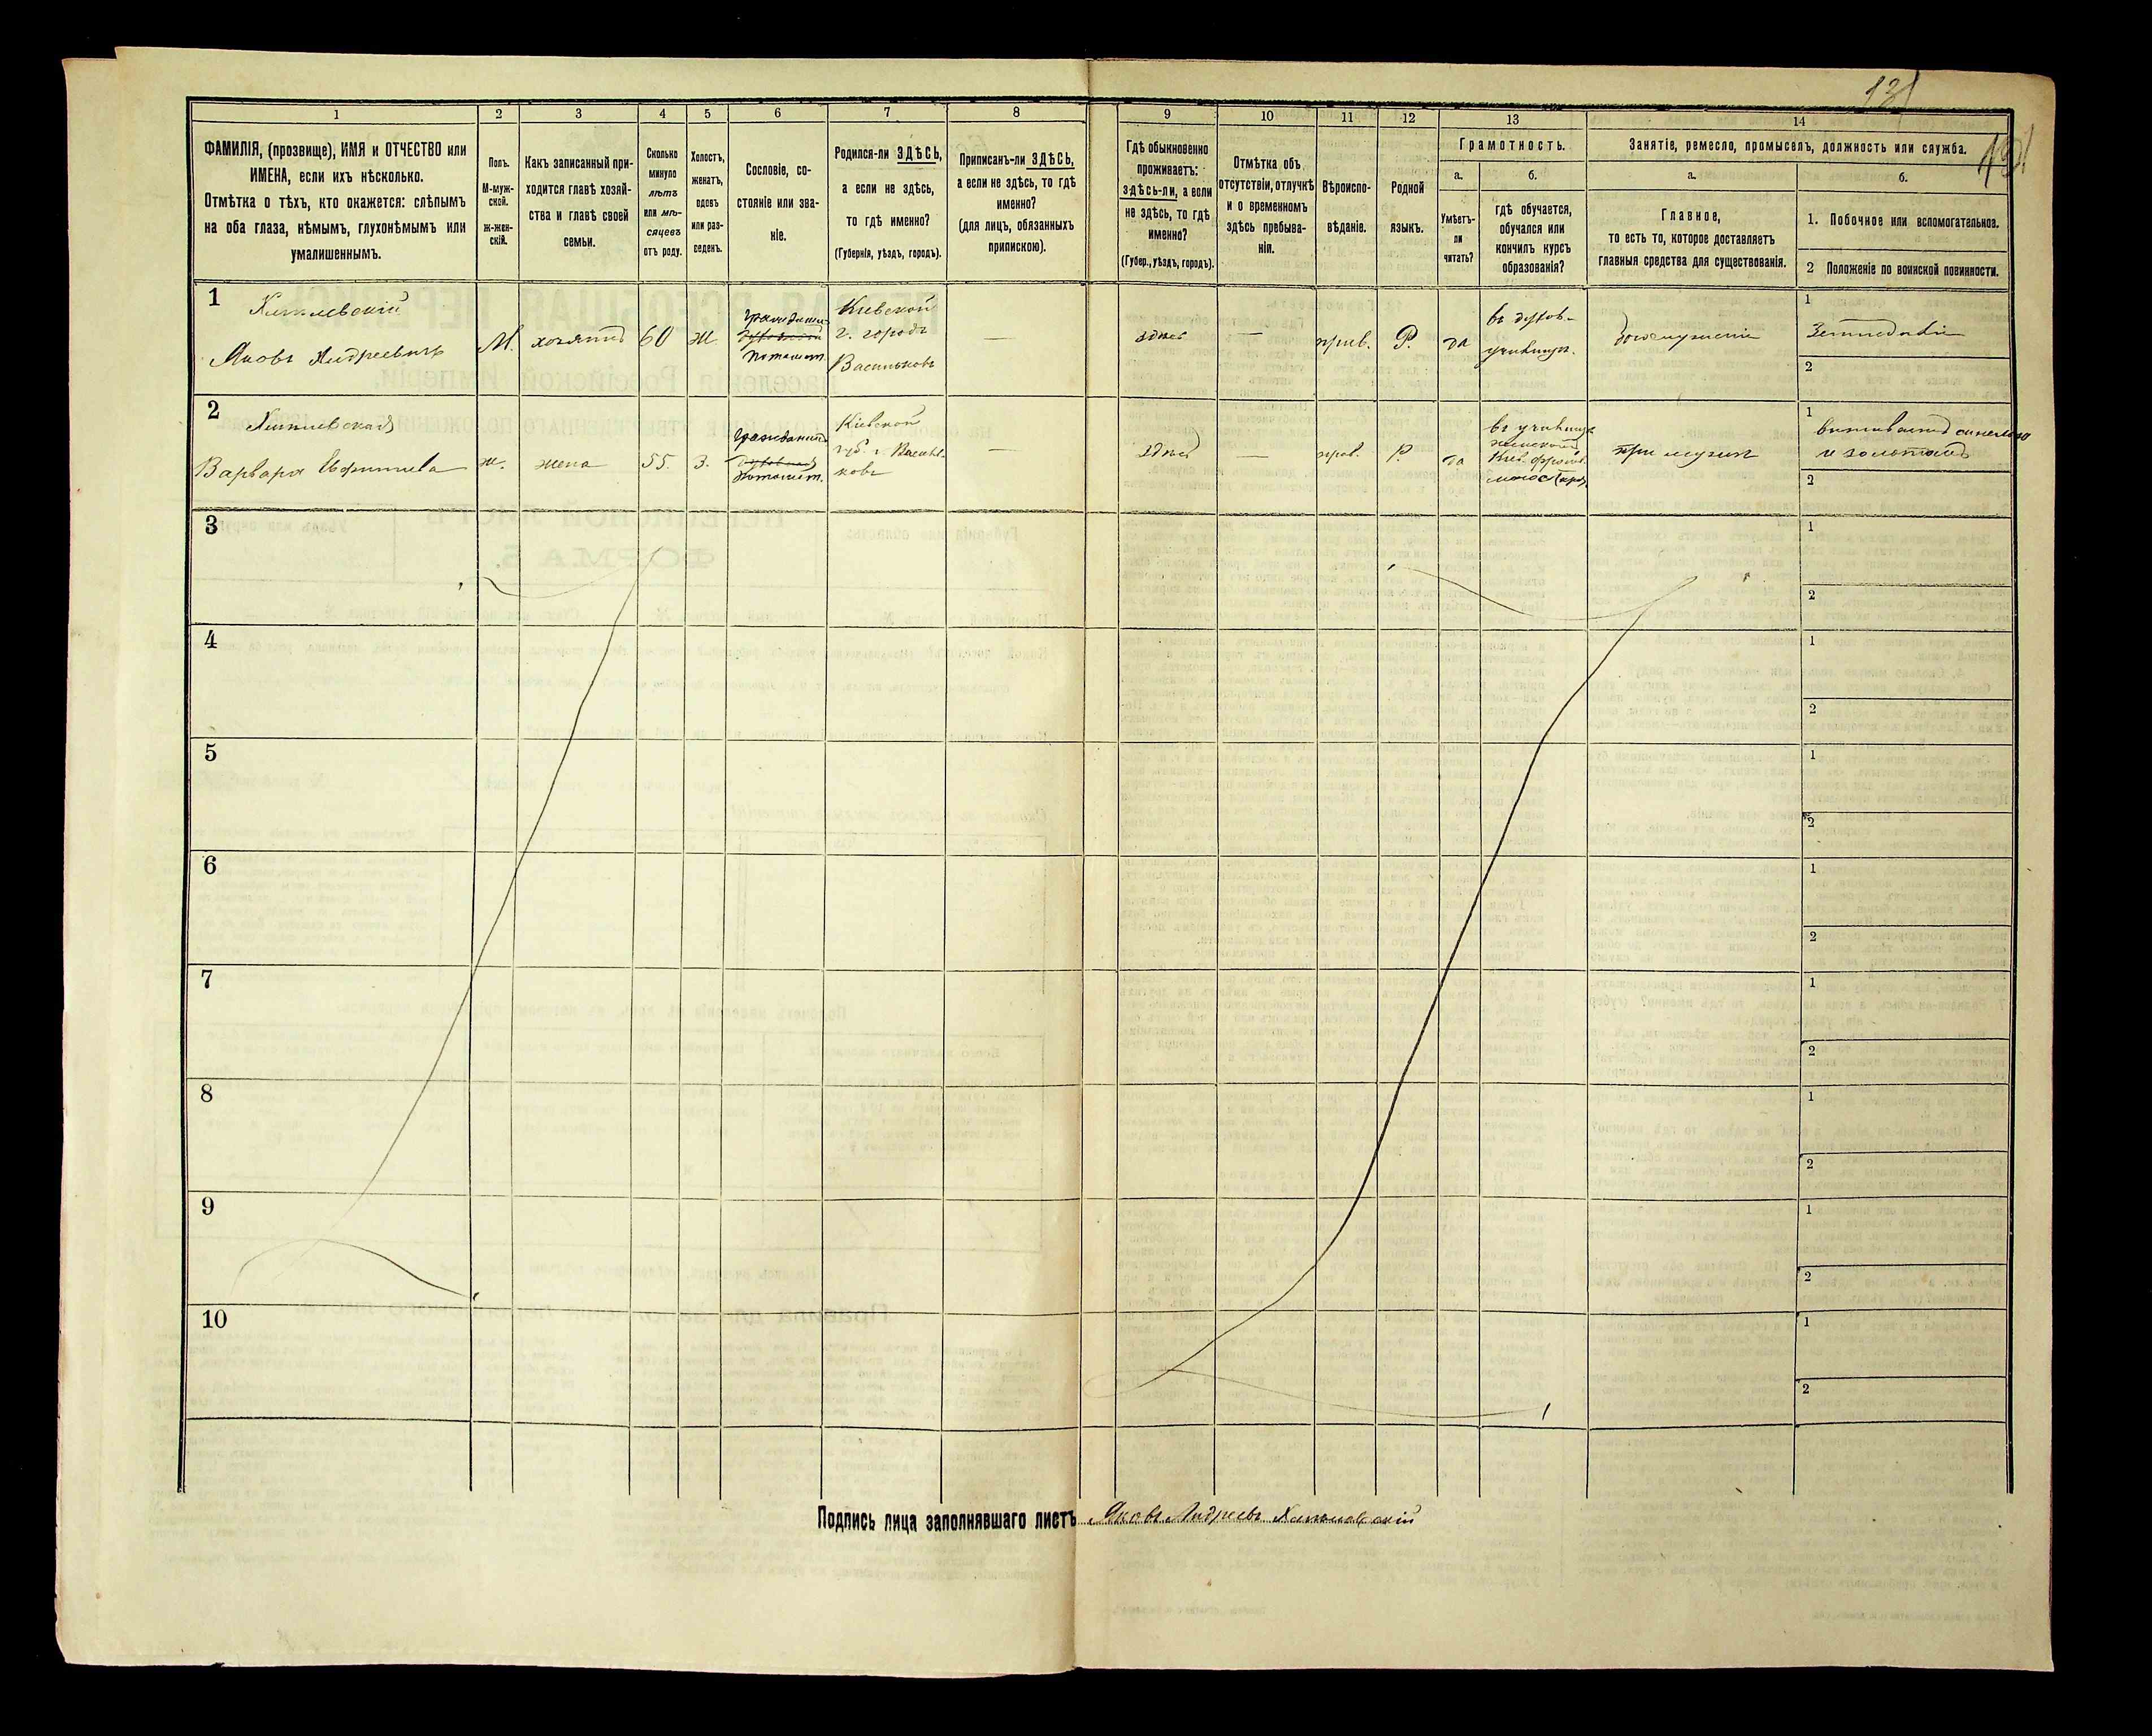 131
131
1
2
3
4
5
6
7
8
9
10
11
12
13
14
ФАМИЛІЯ, (прозвище), ИМЯ и ОТЧЕСТВО или
ИМЕНА, если ихъ нѣсколько.
Отмѣтка о тѣхъ, кто окажется: слѣпымъ
на оба глаза, нѣмымъ, глухонѣмымъ или
умалишеннымъ.
Полъ.
М-муж-
ской.
ж-жен-
скій.
Какъ записанный при-
ходится главѣ хозяй-
ства и главѣ своей
семьи.
Сколько
минуло
лѣтъ
или мѣ-
сяцевъ
отъ роду.
Холостъ,
женатъ,
вдовъ
или раз-
веденъ.
Сословіе, со-
стояніе или зва-
ніе.
Родился-ли ЗДѢСЬ,
а если не здѣсь,
то гдѣ именно?
(Губернія, уѣздъ, городъ).
Приписанъ-ли ЗДѢСЬ,
а если не здѣсь, то гдѣ
именно?
(для лицъ, обязанныхъ
припискою).
Гдѣ обыкновенно
проживаетъ:
здѣсь-ли, а если
не здѣсь, то гдѣ
именно?
(Губер., уѣздъ, городъ).
Отмѣтка объ
отсутствіи, отлучкѣ
и о временномъ
здѣсь пребыва-
ніи.
Вѣроиспо-
вѣданіе.
Родной
языкъ.
Грамотность.
а.
Умѣетъ-
ли
читать?
б.
гдѣ обучается,
обучался или
кончилъ курсъ
образованія?
Занятіе, ремесло, промыселъ, должность или служба.
а.
Главное,
то есть то, которое доставляетъ
главныя средства для существованія.
б.
1. Побочное или вспомогательное.
2 Положеніе по воинской повинности.
1
Яковъ Андреевичъ
М.
хозяинъ
60
ж.
Кіевской
г. городъ
Васильковъ
—
здѣсь
—
прав.
Р.
да
въ духов-
училищѣ.
1
Земледѣліе
2
2
Варвара
ж.
жена
55.
З.
Кіевской
губ. г. Василь-
ковъ
—
здѣсь
—
прав.
Р.
да
въ училищѣ
женской
при мужѣ
1
2
3
1
2
4
1
2
5
1
2
6
1
2
7
1
2
8
1
2
9
1
2
10
1
2
Подпись лица заполнявшаго листъ Яковъ Андреевъ